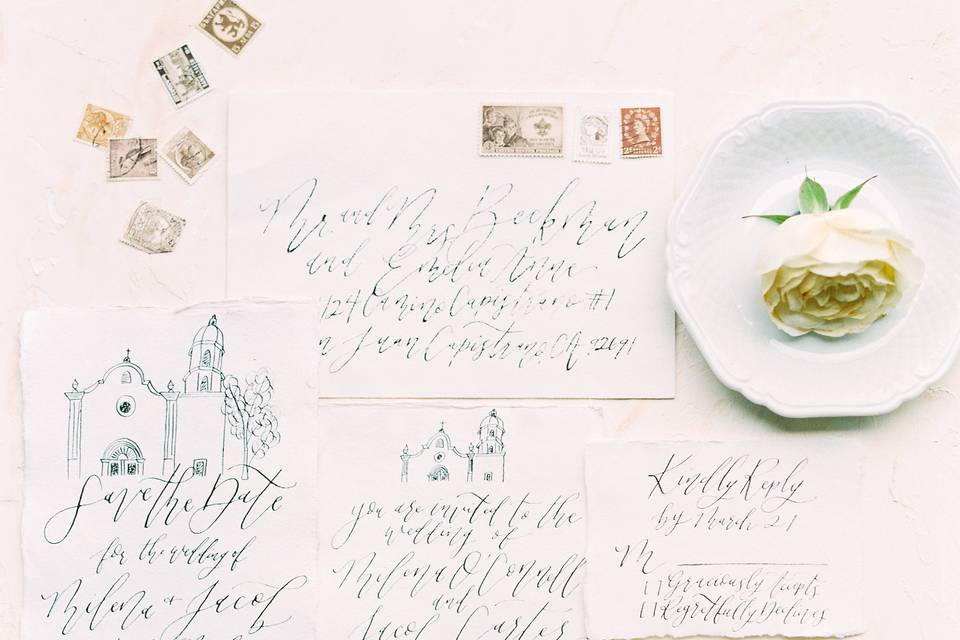 Mr. and Mrs. Beekman
and Emelia Anne
124 Camino Capistrano #1
n Juan Capistrano, CA 92691
Save the Date
for the wedding of
Milena + Jacob
you are invited to the
wedding of
Milena O'Connell
and
Jacob Cortes
Kindly Reply
by March 21
M
( ) Graciously Accepts
( ) Regretfully Declines